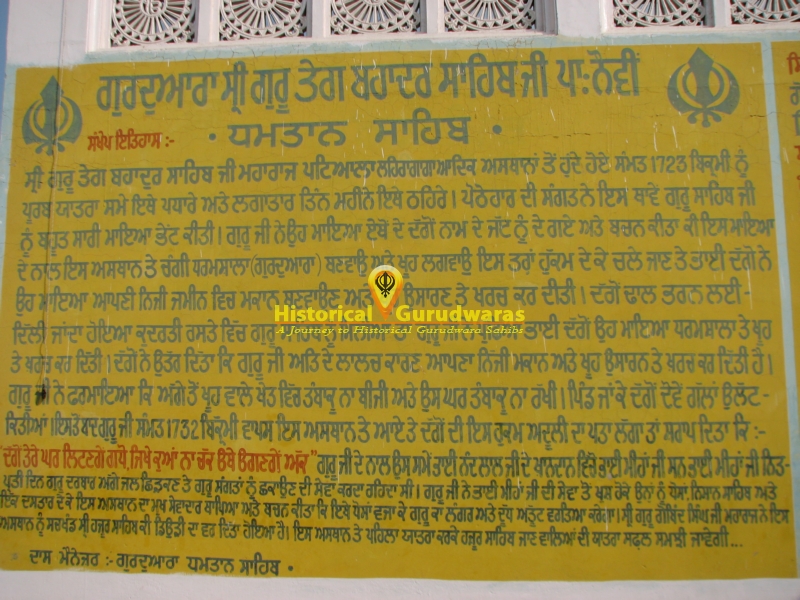 ਗੁਰਦੁਆਰਾ ਸ੍ਰੀ ਗੁਰੂ ਤੇਗ ਬਹਾਦਰ ਸਾਹਿਬ ਜੀ ਪਾ: ਨੌਵੀਂ
ਸੰਖੇਪ ਇਤਿਹਾਸ :-
• ਧਮਤਾਨ ਸਾਹਿਬ •
ਸ੍ਰੀ ਗੁਰੂ ਤੇਗ ਬਹਾਦੁਰ ਸਾਹਿਬ ਜੀ ਮਹਾਰਾਜ ਪਟਿਆਲਾ ਲਹਿਰਾਗਾਗਾ ਆਦਿਕ ਅਸਥਾਨਾਂ ਤੋਂ ਹੁੰਦੇ ਹੋਏ ਸੰਮਤ 1723 ਬਿਕ੍ਰਮੀ ਨੂੰ
ਪੂਰਬ ਯਾਤਰਾ ਸਮੇਂ ਇਥੇ ਪਧਾਰੇ ਅਤੇ ਲਗਾਤਾਰ ਤਿੰਨ ਮਹੀਨੇ ਇਥੇ ਠਹਿਰੇ। ਪੋਠੋਹਾਰ ਦੀ ਸੰਗਤ ਨੇ ਇਸ ਥਾਵੇਂ ਗੁਰੂ ਸਾਹਿਬ ਜੀ
ਨੂੰ ਬਹੁਤ ਸਾਰੀ ਮਾਇਆ ਭੇਂਟ ਕੀਤੀ। ਗੁਰੂ ਜੀ ਨੇ ਉਹ ਮਾਇਆ ਏਥੋਂ ਦੇ ਦੱਗੋਂ ਨਾਮ ਦੇ ਜੱਟ ਨੂੰ ਦੇ ਗਏ ਅਤੇ ਬਚਨ ਕੀਤਾ ਕੀ ਇਸ ਮਾਇਆ
ਦੇ ਨਾਲ ਇਸ ਅਸਥਾਨ ਤੇ ਚੰਗੀ ਧਰਮਸਾਲਾ (ਗੁਰਦੁਆਰਾ) ਬਣਵਾਉ ਅਤੇ ਖੂਹ ਲਗਵਾਉ ਇਸ ਤਰ੍ਹਾਂ ਹੁੱਕਮ ਦੇ ਕੇ ਚਲੇ ਜਾਣ ਤੇ ਭਾਈ ਦੱਗੋ ਨੇ
ਉਹ ਮਾਇਆ ਆਪਣੀ ਨਿਜੀ ਜਮੀਨ ਵਿਚ ਮਕਾਨ ਬਣਵਾਉਣ ਅਤੇ ਉਸਾਰਣ ਤੇ ਖਰਚ ਕਰ ਦੀਤੀ। ਦੱਗੋਂ ਢਾਲ ਭਰਨ ਲਈ
ਦਿੱਲੀ ਜਾਂਦਾ ਹੋਇਆ ਕੁਦਰਤੀ ਰਸਤੇ ਵਿੱਚ ਗੁਰੂ ਭਾਈ ਦੱਗੋਂ ਉਹ ਮਾਇਆ ਧਰਮਸਾਲਾ ਤੇ ਖੂਹ
ਤੇ ਖਰਚ ਕਰ ਦਿੱਤੀ। ਦੱਗੋਂ ਨੇ ਉੱਤਰ ਦਿੱਤਾ ਕਿ ਗੁਰੂ ਜੀ ਅਤਿ ਦੇ ਲਾਲਚ ਕਾਰਣ ਆਪਣਾ ਨਿੱਜੀ ਮਕਾਨ ਅਤੇ ਖੂਹ ਉਸਾਰਨ ਤੇ ਖ਼ਰਚ ਕਰ ਦਿੱਤੀ ਹੈ।
ਗੁਰੂ ਜੀ ਨੇ ਫਰਮਾਇਆ ਕਿ ਅੱਗੇ ਤੋਂ ਖੂਹ ਵਾਲੇ ਖੇਤ ਵਿੱਚ ਤੰਬਾਕੂ ਨਾ ਬੀਜੀ ਅਤੇ ਉਸ ਘਰ ਤੰਬਾਕੂ ਨਾ ਰੱਖੀ। ਪਿੰਡ ਜਾ ਕੇ ਦੱਗੋਂ ਦੋਵੇਂ ਗੱਲਾਂ ਉਲਟ-
ਕਿਤੀਆਂ। ਇਸਤੋਂ ਬਾਦ ਗੁਰੂ ਜੀ ਸੰਮਤ 1732 ਬਿਕ੍ਰਮੀ ਵਾਪਸ ਇਸ ਅਸਥਾਨ ਤੇ ਆਏ ਤੇ ਦੱਗੋਂ ਦੀ ਇਸ ਹੁਕਮ ਅਦੂਲੀ ਦਾ ਪਤਾ ਲੱਗਾ ਤਾਂ ਸ਼ਰਾਪ ਦਿਤਾ ਕਿ :-
"ਦੱਗੋ ਤੇਰੇ ਘਰ ਲਿਟਣਗੇ ਗਾਧੇ, ਜਿਖੇ ਕੂਆਂ ਨਾ ਚੱਕ ਉਥੇ ਉਗਣਗੇਂ ਅੱਕ" ਗੁਰੂ ਜੀ ਦੇ ਨਾਲ ਉਸ ਸਮੇਂ ਭਾਈ ਨੰਦ ਲਾਲ ਜੀ ਦੇ ਖ਼ਾਨਦਾਨ ਵਿੱਚੋਂ ਭਾਈ ਮੀਹਾਂ ਜੀ ਸਨ ਭਾਈ ਮੀਹਾਂ ਜੀ ਨਿਤ-
ਪ੍ਰਤੀ ਦਿਨ ਗੁਰੂ ਦਰਬਾਰ ਅੱਗੇ ਜਲ ਛਿੜਕਣ ਤੇ ਗੁਰੂ ਸੰਗਤਾਂ ਨੂੰ ਛਕਾਉਣ ਦੀ ਸੇਵਾ ਕਰਦਾ ਰਹਿੰਦਾ ਸੀ। ਗੁਰੂ ਜੀ ਨੇ ਭਾਈ ਮੀਹਾਂ ਜੀ ਦੀ ਸੇਵਾ ਤੋਂ ਖੁਸ਼ ਹੋਕੇ ਉਨਾਂ ਨੂੰ ਧੌਂਸਾ, ਨਿਸ਼ਾਨ ਸਾਹਿਬ ਅਤੇ
ਇੱਕ ਦਸਤਾਰ ਦੇ ਕੇ ਇਸ ਅਸਥਾਨ ਦਾ ਮੁਖ ਸੇਵਾਦਾਰ ਥਾਪਿਆ ਅਤੇ ਬਚਨ ਕੀਤਾ ਕਿ ਇਥੇ ਧੌਸਾ ਵਜਾ ਕੇ ਗੁਰੂ ਕਾ ਲੰਗਰ ਅਤੇ ਦੁੱਧ ਅਤੁੱਟ ਵਰਤਿਆ ਕਰੇਗਾ। ਸ੍ਰੀ ਗੁਰੂ ਗੋਬਿੰਦ ਸਿੰਘ ਜੀ ਮਹਾਰਾਜ ਨੇ ਇਸ
ਅਸਥਾਨ ਨੂੰ ਸਚਖੰਡ ਸ੍ਰੀ ਹਜ਼ੂਰ ਸਾਹਿਬ ਕੀ ਡਿਉੜੀ ਦਾ ਵਰ ਦਿੱਤਾ ਹੋਇਆ ਹੈ। ਇਸ ਅਸਥਾਨ ਤੇ ਪਹਿਲਾ ਯਾਤਰਾ ਕਰਕੇ ਹਜ਼ੂਰ ਸਾਹਿਬ ਜਾਣ ਵਾਲਿਆਂ ਦੀ ਯਾਤਰਾ ਸਫਲ ਸਮਝੀ ਜਾਵੇਗੀ...
ਦਾਸ ਮੈਨੇਜਰ :- ਗੁਰਦੁਆਰਾ ਧਮਤਾਨ ਸਾਹਿਬ •
Historical Gurudwaras
A Journey to Historical Gurudwara Sahibs